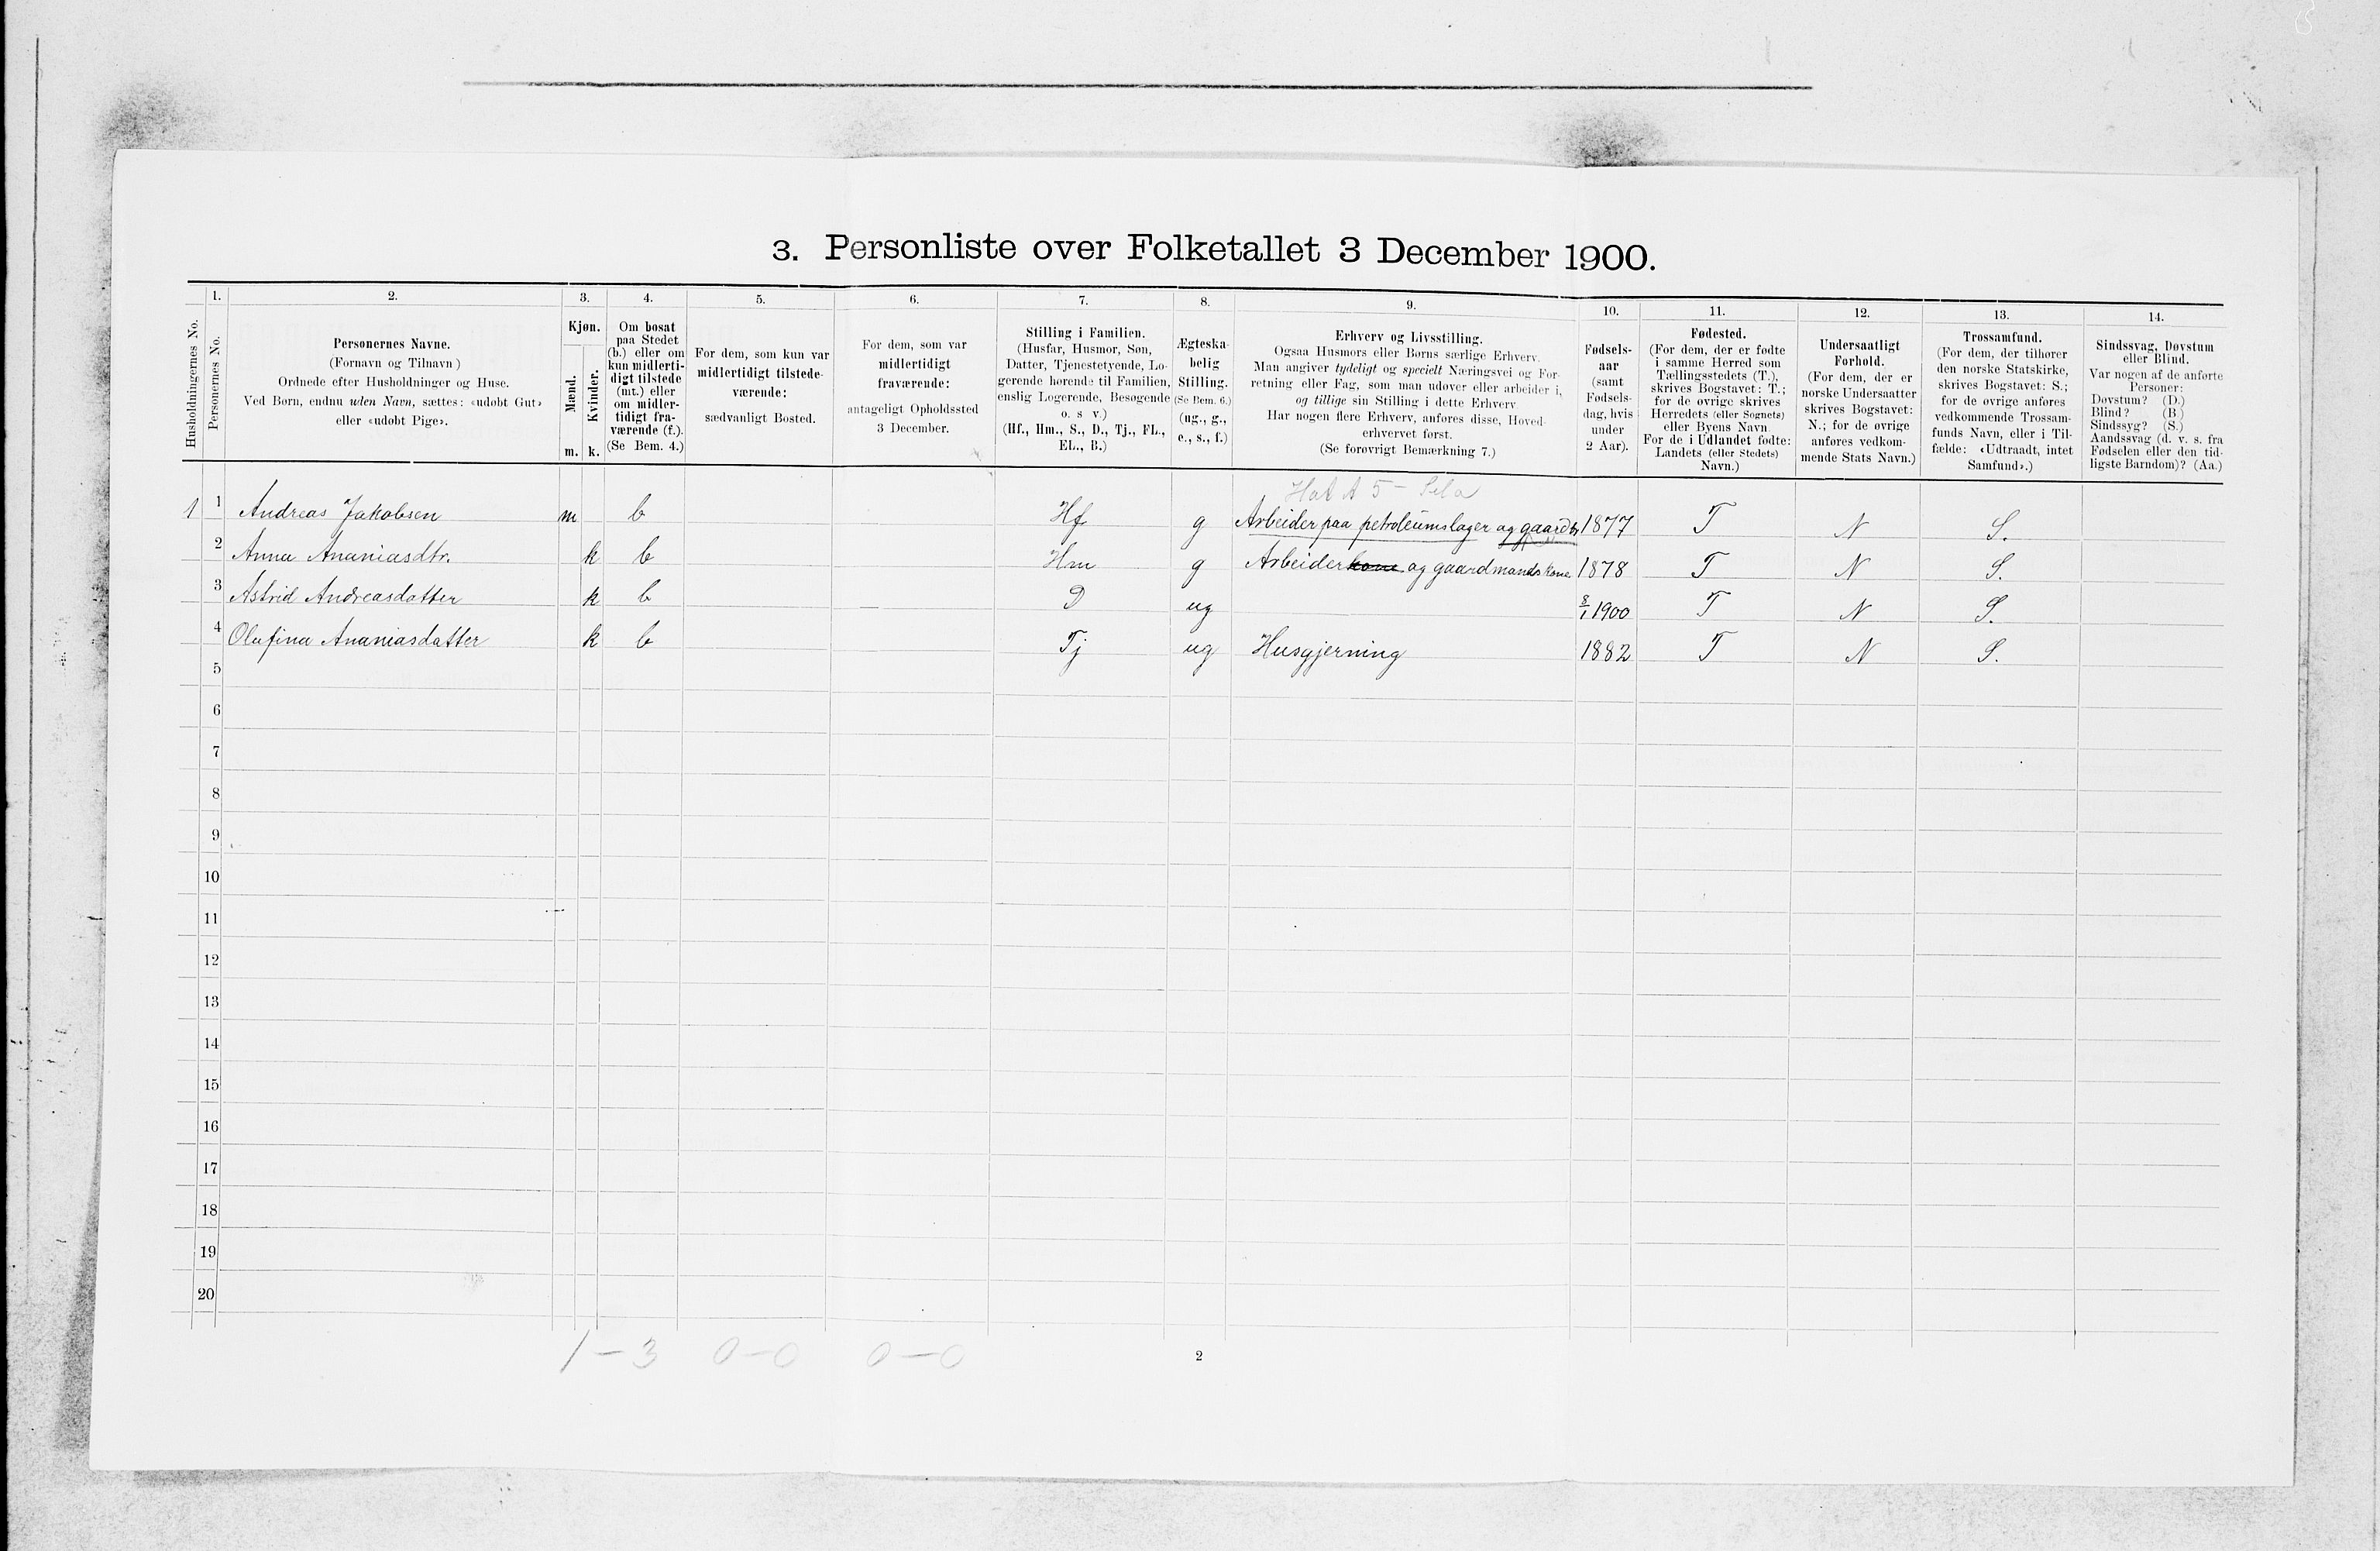 3. Personliste over Folketallet 3 December 1900.
Husholdningernes No.
1.
Personernes No.
2.
Personernes Navne.
(Fornavn og Tilnavn)
Ordnede efter Husholdninger og Huse.
Ved Børn, endnu uden Navn, sættes: «udøbt Gut»
eller «udøbt Pige».
3.
Kjøn.
Mænd.
Kvinder.
m. k.
4.
Om bosat
paa Stedet
(b.) eller om
kun midlerti-
digt tilstede
(mt.) eller
om midler-
tidigt fra-
værende (f.).
(Se Bem. 4.)
5.
For dem, som kun var
midlertidigt tilstede-
værende:
sædvanligt Bosted.
6.
For dem, som var
midlertidigt
fraværende:
antageligt Opholdssted
3 December.
7.
Stilling i Familien.
(Husfar, Husmor, Søn,
Datter, Tjenestetyende, Lo-
gerende hørende til Familien,
enslig Logerende, Besøgende
o. s v.)
(Hf., Hm., S., D., Tj., FL.,
EL., B.)
8.
Ægteska-
belig
Stilling.
(Se Bem. 6.)
(ug., g.,
e., s., f.)
9.
Erhverv og Livsstilling.
Ogsaa Husmors eller Børns særlige Erhverv.
Man angiver tydeligt og specielt Næringsvei og For-
retning eller Fag, som man udøver eller arbeider i,
og tillige sin Stilling i dette Erhverv.
Har nogen flere Erhverv, anføres disse, Hoved-
erhvervet først.
(Se forøvrigt Bemærkning 7.)
10.
Fødsels-
aar
(samt
Fødsels-
dag, hvis
under
2 Aar).
11.
Fødested.
(For dem, der er fødte
i samme Herred som
Tællingsstedets (T.),
skrives Bogstavet: T.;
for de øvrige skrives
Herredets (eller Sognets)
eller Byens Navn.
For de i Udlandet fødte:
Landets (eller Stedets)
Navn.)
12.
Undersaatligt
Forhold.
(For dem, der er
norske Undersaatter
skrives Bogstavet:
N.; for de øvrige
anføres vedkom-
mende Stats Navn.)
13.
Trossamfund.
(For dem, der tilhører
den norske Statskirke,
skrives Bogstavet: S.;
for de øvrige anføres
vedkommende Trossam-
funds Navn, eller i Til-
fælde: «Udtraadt, intet
Samfund».)
14.
Sindssvag, Døvstum
eller Blind.
Var nogen af de anførte
Personer:
Døvstum? (D.)
Blind? (B.)
Sindssyg? (S.)
Aandssvag (d. v. s. fra
Fødselen eller den tid-
ligste Barndom)? (Aa.)
1 1 Andreas Jakobsen m b Hf g Arbeider paa petroleumslager og gaardbr 1877 T N S.
2 Anna Ananiasdtr. k b Hm g Arbeider kone og gaardmandskone 1878 T N S.
3 Astrid Andreasdatter k b D ug 8/1 1900 T N S.
4 Olufina Ananiasdatter k b Tj ug Husgjerning 1882 T N S.
5
6
7
8
9
10
11
12
13
14
15
16
17
18
19
20
1 - 3 0 - 0 0 - 0
2